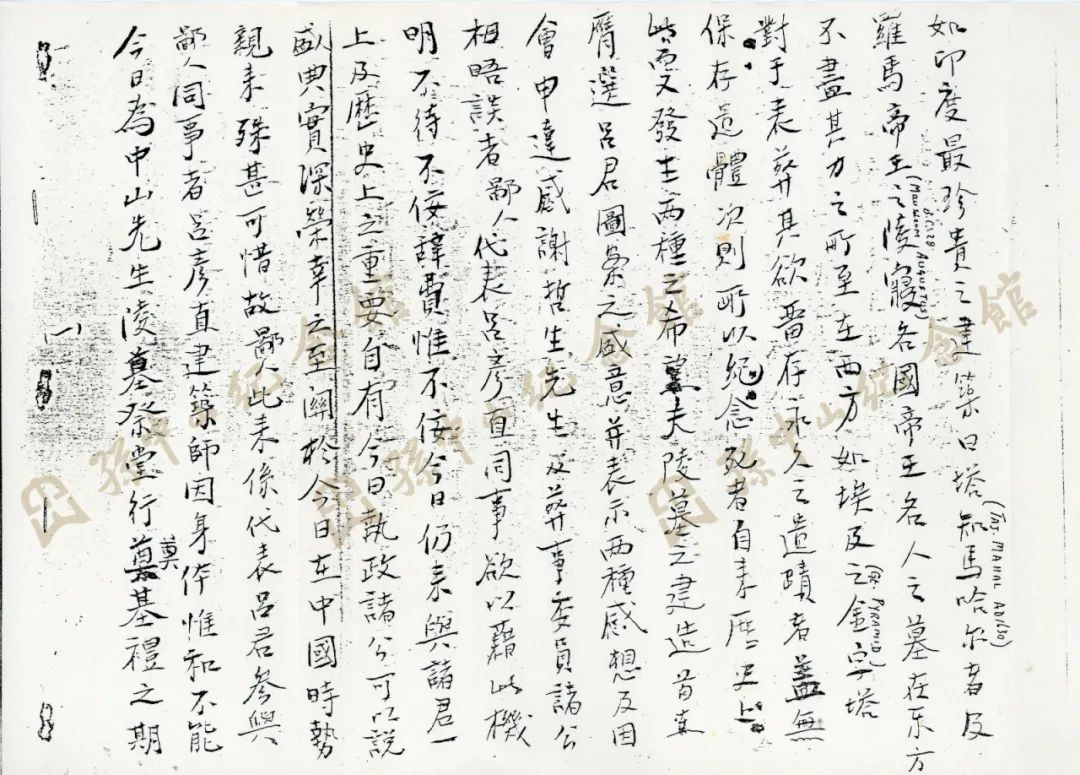 今日為中山先生陵墓祭堂行奠基禮之期
奠
鄙人同事者呂彥直建築師因身体惟和不能
親来殊甚可惜故鄙人此来係代表呂君參與
盛典實深榮幸之至關於今日在中國時勢
上及歷史上之重要自有今日執政諸公可以說
明不待不佞辭費惟不佞今日仍来與諸君一
相晤談者鄙人代表呂彥直同事欲以藉此機
會申達感謝哲生先生及葬事委員諸公
膺選呂君圖案之盛意并表示兩種感想及因
此而又發生兩種之希望夫陵墓之建造首在
保存遺體次則所以紀念死者自来歷史上
對于表葬其欲留存永久之遺蹟者蓋無
不盡其力之所至在西方如埃及之金字塔
(The PYRAMID)
羅馬帝王之陵寢各國帝王名人之墓在东方
(MAUSOLEUM AUGUSTUS)
B.C. 28
如印度最珍貴之建築曰塔知馬哈尔者及
(TAJ MAHAL AD1630)
一
孫中山紀念館
孫中山紀念館